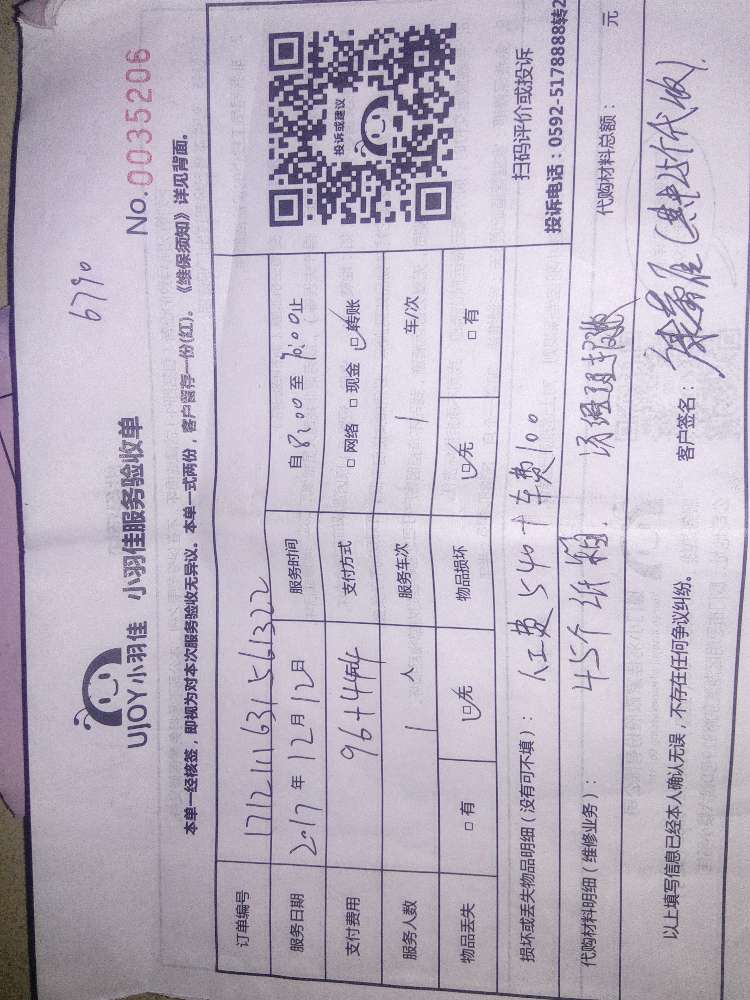 6790
UJOY小羽佳 小羽佳服务验收单
No.0035206
本单一经核签，即视为对本次服务验收无异议。本单一式两份，客户留存一份(红)。《维保须知》详见背面。
订单编号 171211631561322
服务日期 2017年12月12日 服务时间 自8:00至 :00止
支付费用 96+444 支付方式 □网络 □现金 ☑转账
服务人数 1人 服务车次 1 车/次
物品丢失 □有 ☑无 物品损坏 ☑无 □有
投诉或建议
扫码评价或投诉
投诉电话：0592-5178888转2
损坏或丢失物品明细（没有可不填）： 人工费540+车费100
代购材料明细（维修业务）： 45个纸箱. 代购材料总额： 元
以上填写信息已经本人确认无误，不存在任何争议纠纷。 客户签名：